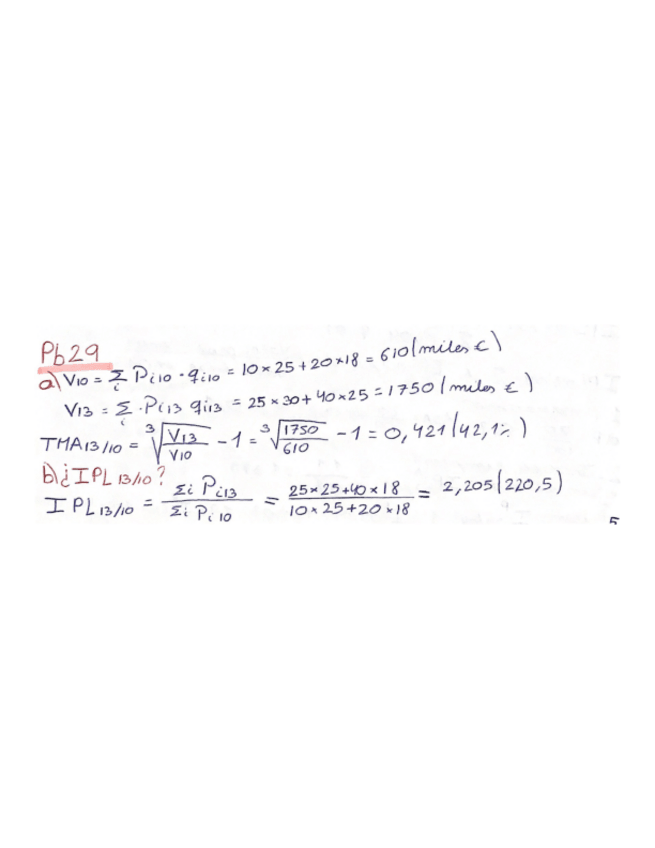 Pb29
a) V10 = Σi Pi10 · qi10 = 10×25+20×18 = 610 (miles €)
V13 = Σi · Pi13 qi13 = 25×30+40×25 = 1750 (miles €)
TMA13/10 = ³√(V13/V10) - 1 = ³√(1750/610) - 1 = 0,421 (42,1%)
b) ¿IPL 13/10?
IPL13/10 = Σi Pi13 / Σi Pi10 = 25×25+40×18 / 10×25+20×18 = 2,205 (220,5)
5